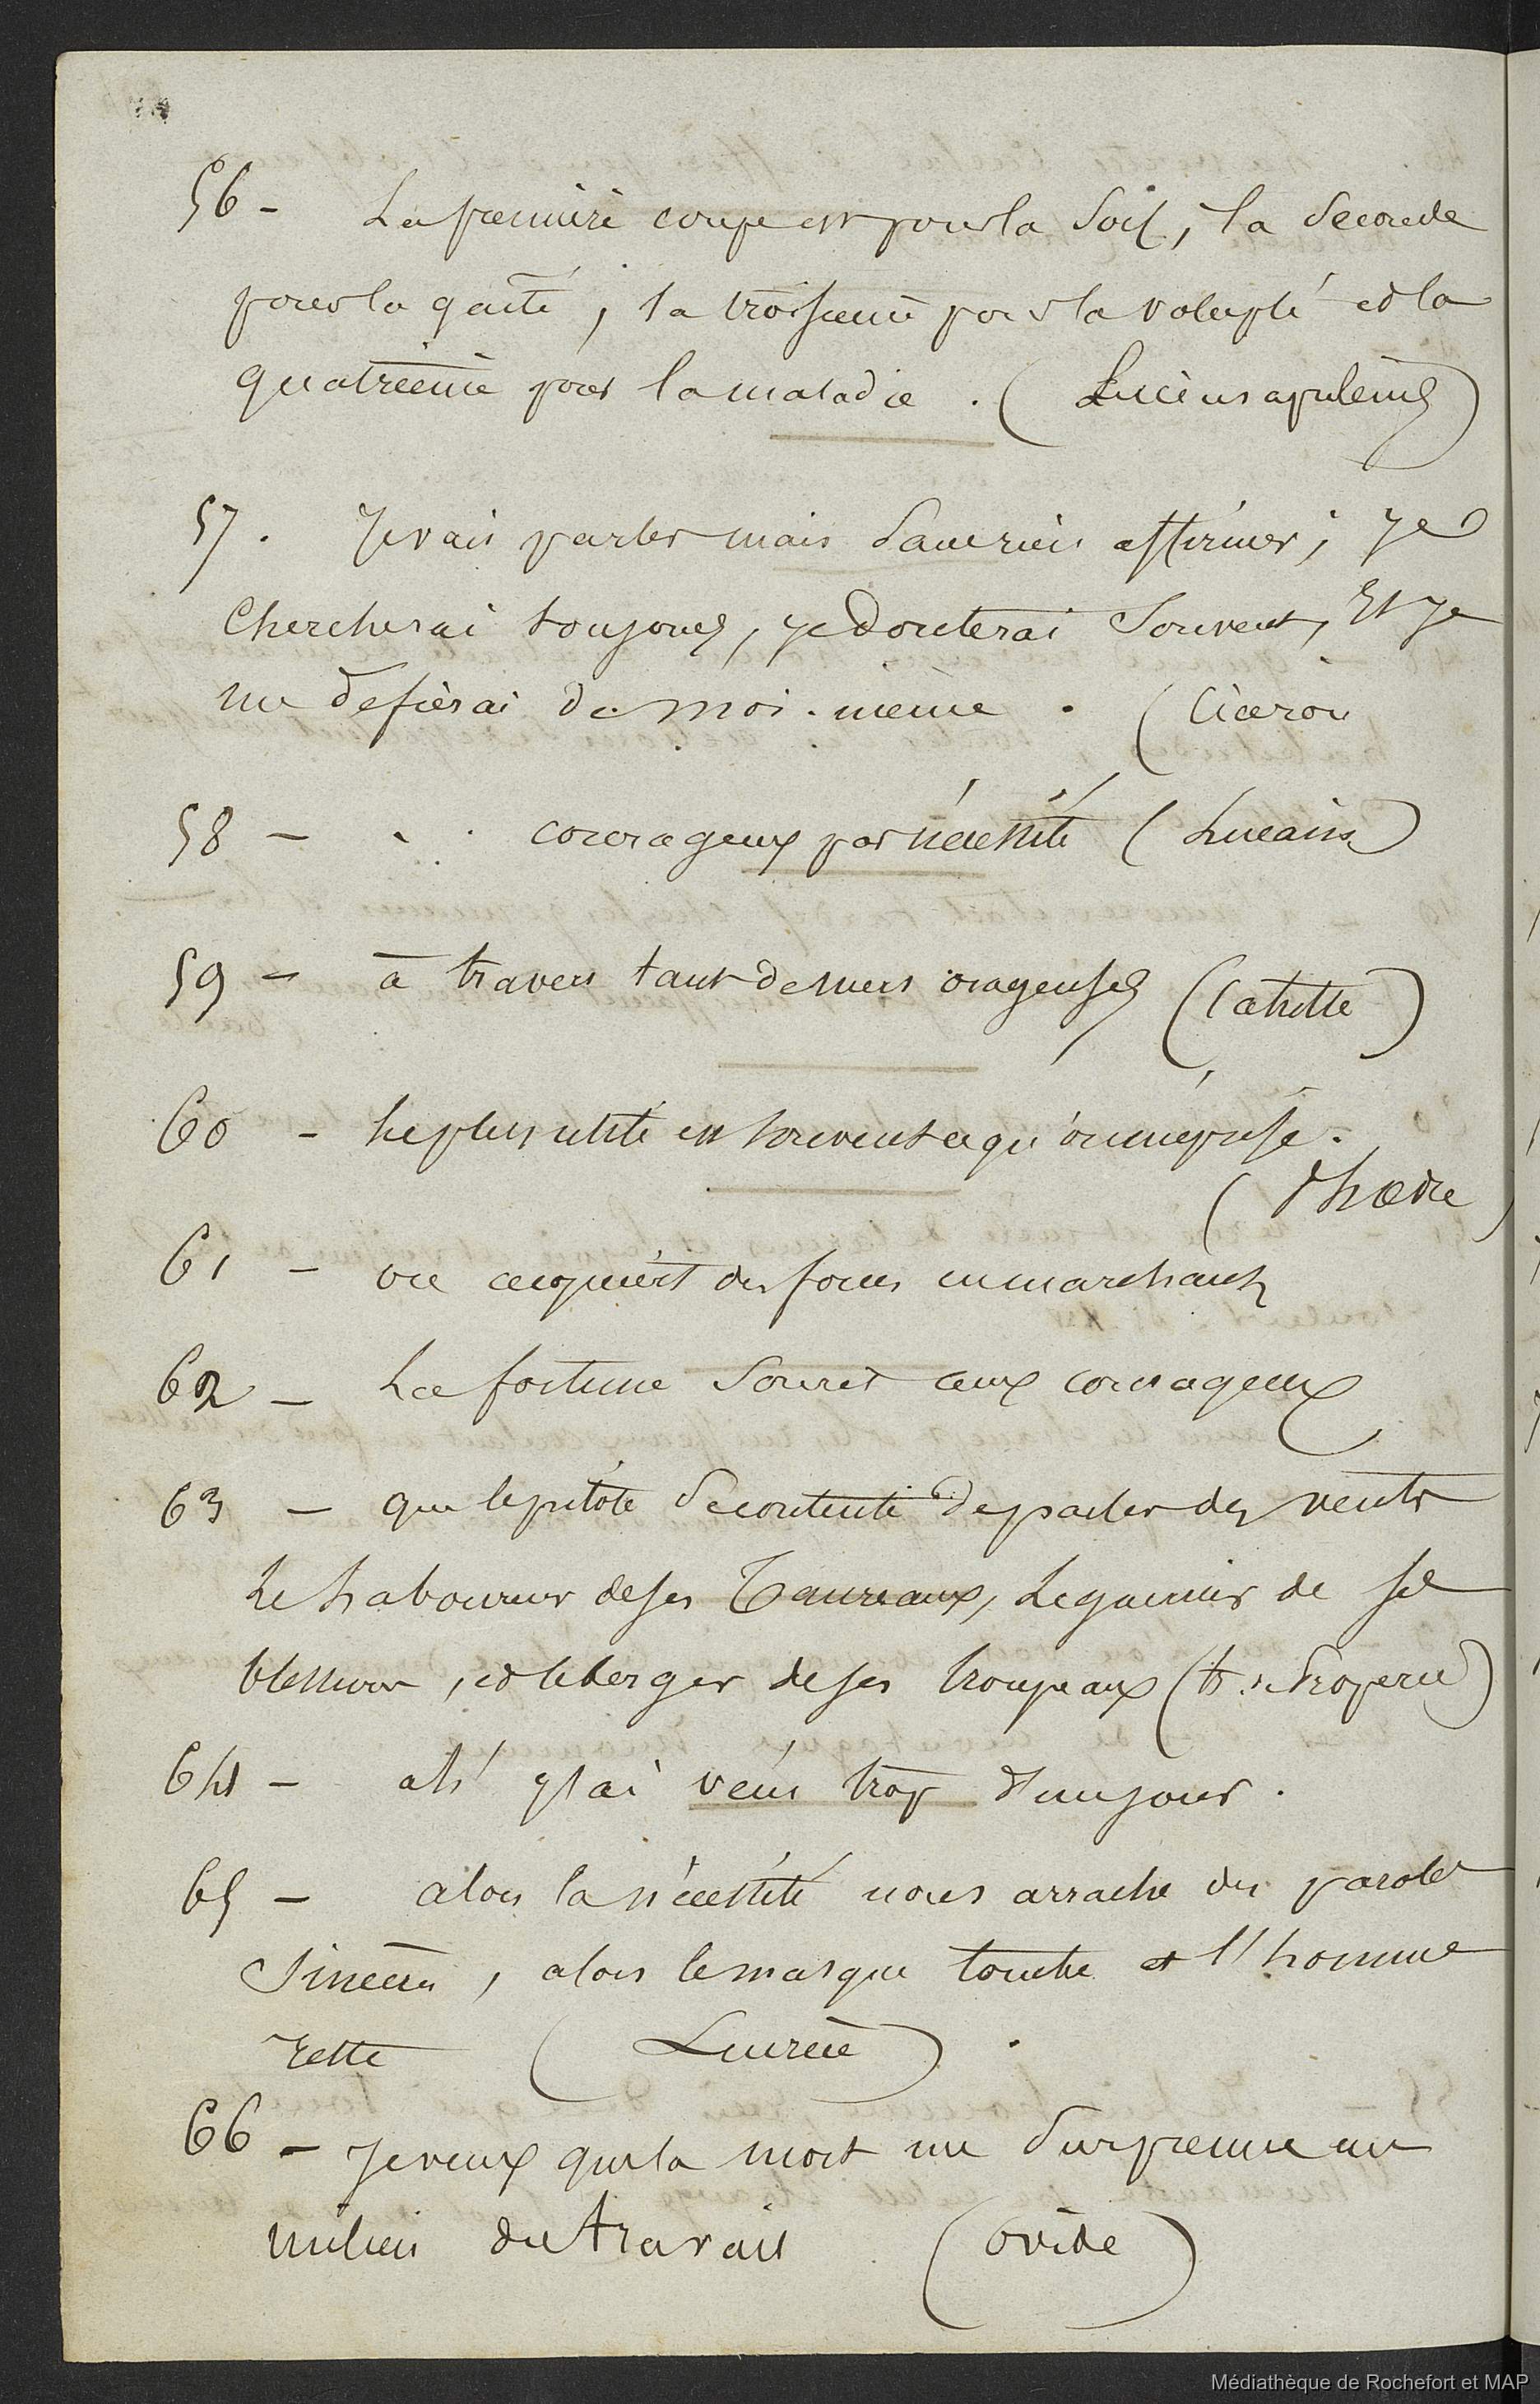 56 - La première coupe est pour la soif, la seconde
pour la gaité, la troisième pour la volupté et la
quatrième pour la maladie. (Lucius apuleius)
57. Je vais parler mais sans rien affirmer; je
chercherai toujours, je douterai souvent, Et je
me defierai de moi-même. (Ciceron
58 - courageux par nécessité (Lucain)
59 - à travers tant de mers orageuses (Catulle)
60 - Le plus utile est souvent ce qu'on méprise.
(Phœdre)
61 - on acquiert des forces en marchant
62 - La fortune sourit aux courageux
63 - que le pilote se contente de parler des vents
Le Laboureur de ses Taureaux, Le guerrier de ses
blessures, et le berger de ses troupeaux (Properce)
64 - ah j'ai vécu trop d'un jour.
65 - alors la nécessité nous arrache des paroles
sincères, alors le masque tombe et l'homme
reste (Lucrèce).
66 - Je veux que la mort me surprenne au
milieu du travail (ovide)
Médiathèque de Rochefort et MAP